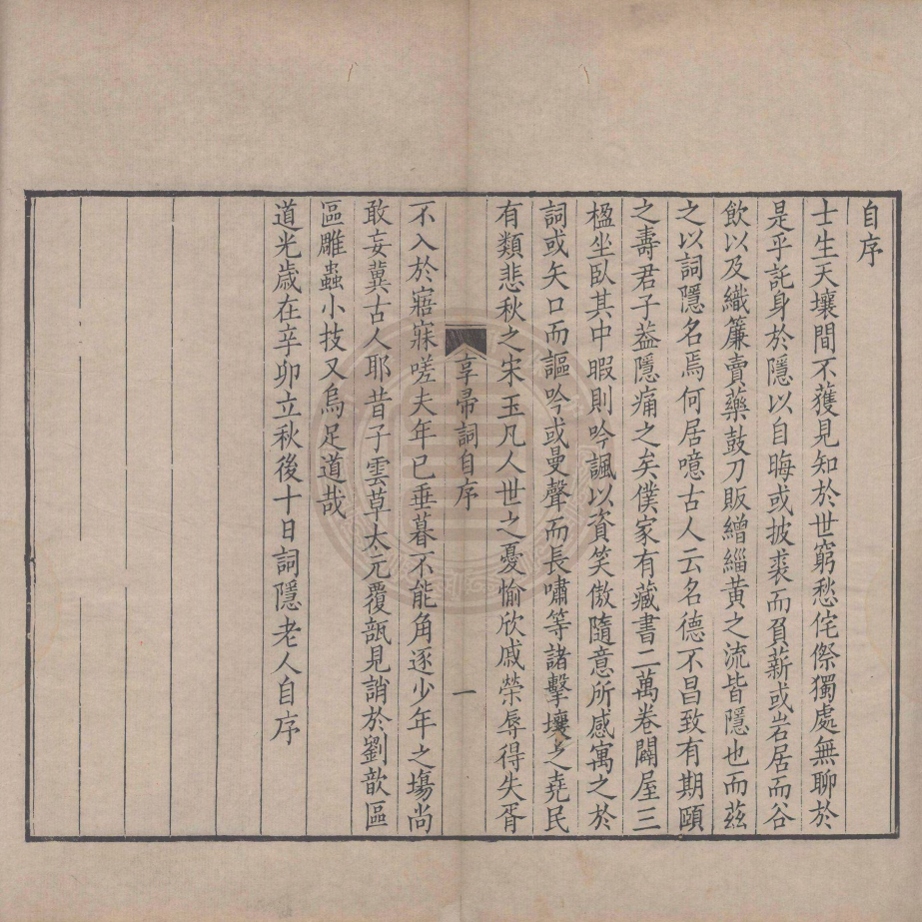 自序
士生天壤間不獲見知於世窮愁侘傺獨處無聊於
是乎託身於隱以自晦或披裘而負薪或岩居而谷
飲以及織簾賣藥鼓刀販繒緇黃之流皆隱也而茲
之以詞隱名焉何居噫古人云名德不昌致有期頤
之壽君子葢隱痛之矣僕家有藏書二萬卷闢屋三
楹坐臥其中暇則吟諷以資笑傲隨意所感寓之於
詞或矢口而謳吟或曼聲而長嘯等諸擊壤之堯民
有類悲秋之宋玉凡人世之憂愉欣戚榮辱得失胥
享帚詞自序
一
不入於寤寐嗟夫年已垂暮不能角逐少年之塲尚
敢妄冀古人耶昔子雲草太元覆瓿見誚於劉歆區
區雕蟲小技又烏足道哉
道光歲在辛卯立秋後十日詞隱老人自序